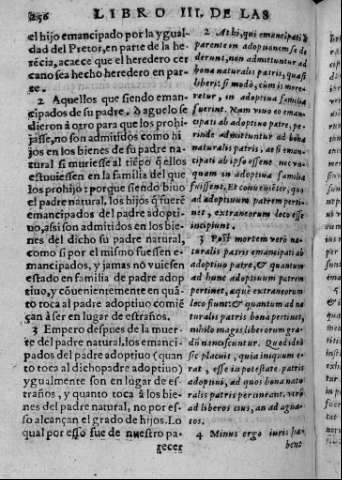 256 LIBRO III. DE LAS
el hijo emancipado por la ygual-
dad del Pretor, en parte de la he-
rēcia, acaece que el heredero cer
cano sea hecho heredero en par-
te.
2 Aquellos que siendo eman-
cipados de su padre, o aguelo se
dieron à otro para que los prohi-
jasse, no son admitidos como hi
jos en los bienes de su padre na-
tural si muriesse al tiēpo q̄ ellos
estouiessen en la familia del que
los prohijo: porque siendo biuo
el padre natural, los hijos q̄ fuerē
emancipados del padre adopti-
uo, assi son admitidos en los bie-
nes del dicho su padre natural,
como si por el mismo fuessen e-
mancipados, y jamas nō vuiessē
estado en familia de padre adop
tiuo, y cōuenientemente en quā-
to toca al padre adoptiuo comiē
çan à ser en lugar de estraños.
3 Empero despues de la muer-
te del padre natural, los emanci-
pados del padre adoptiuo (quan
to toca al dicho padre adoptiuo)
ygualmente son en lugar de es-
traños, y quanto toca à los bie-
nes del padre natural, no por es-
so alcançan el grado de hijos. Lo
qual por esso fue de nuestro pa-
recer
2 At hi, qui emancipati à
parente in adoptionem se de
derunt, non admittuntur ad
bona naturalis patris, quasi
liberi: si modò, cùm is more-
retur, in adoptiua familia
fuerint. Nam viuo eo eman-
cipati ab adoptiuo patre, pe-
rinde admittuntur ad bona
naturalis patris, ac si eman-
cipati ab ipso essent nec vn-
quam in adoptiua familia
fuissent. Et conuenienter, quo
ad adoptiuum patrem perti-
net, extraneorum loco esse
incipiunt.
3 Post mortem verò na-
turalis patris emancipati ab
adoptiuo patre, & quantum
ad hunc adoptiuum patrem
pertinet, aequè extraneorum
loco fiunt: & quantum ad na
turalis patris bona pertinet,
nihilo magis liberorum gra-
dū nanciscuntur. Quod ideò
sic placuit, quia iniquum e-
rat, esse in potestate patris
adoptiui, ad quos bona natu
ralis patris pertinerent, vtrū
ad liberos eius, an ad agna-
tos.
4 Minus ergo iuris ha-
bent